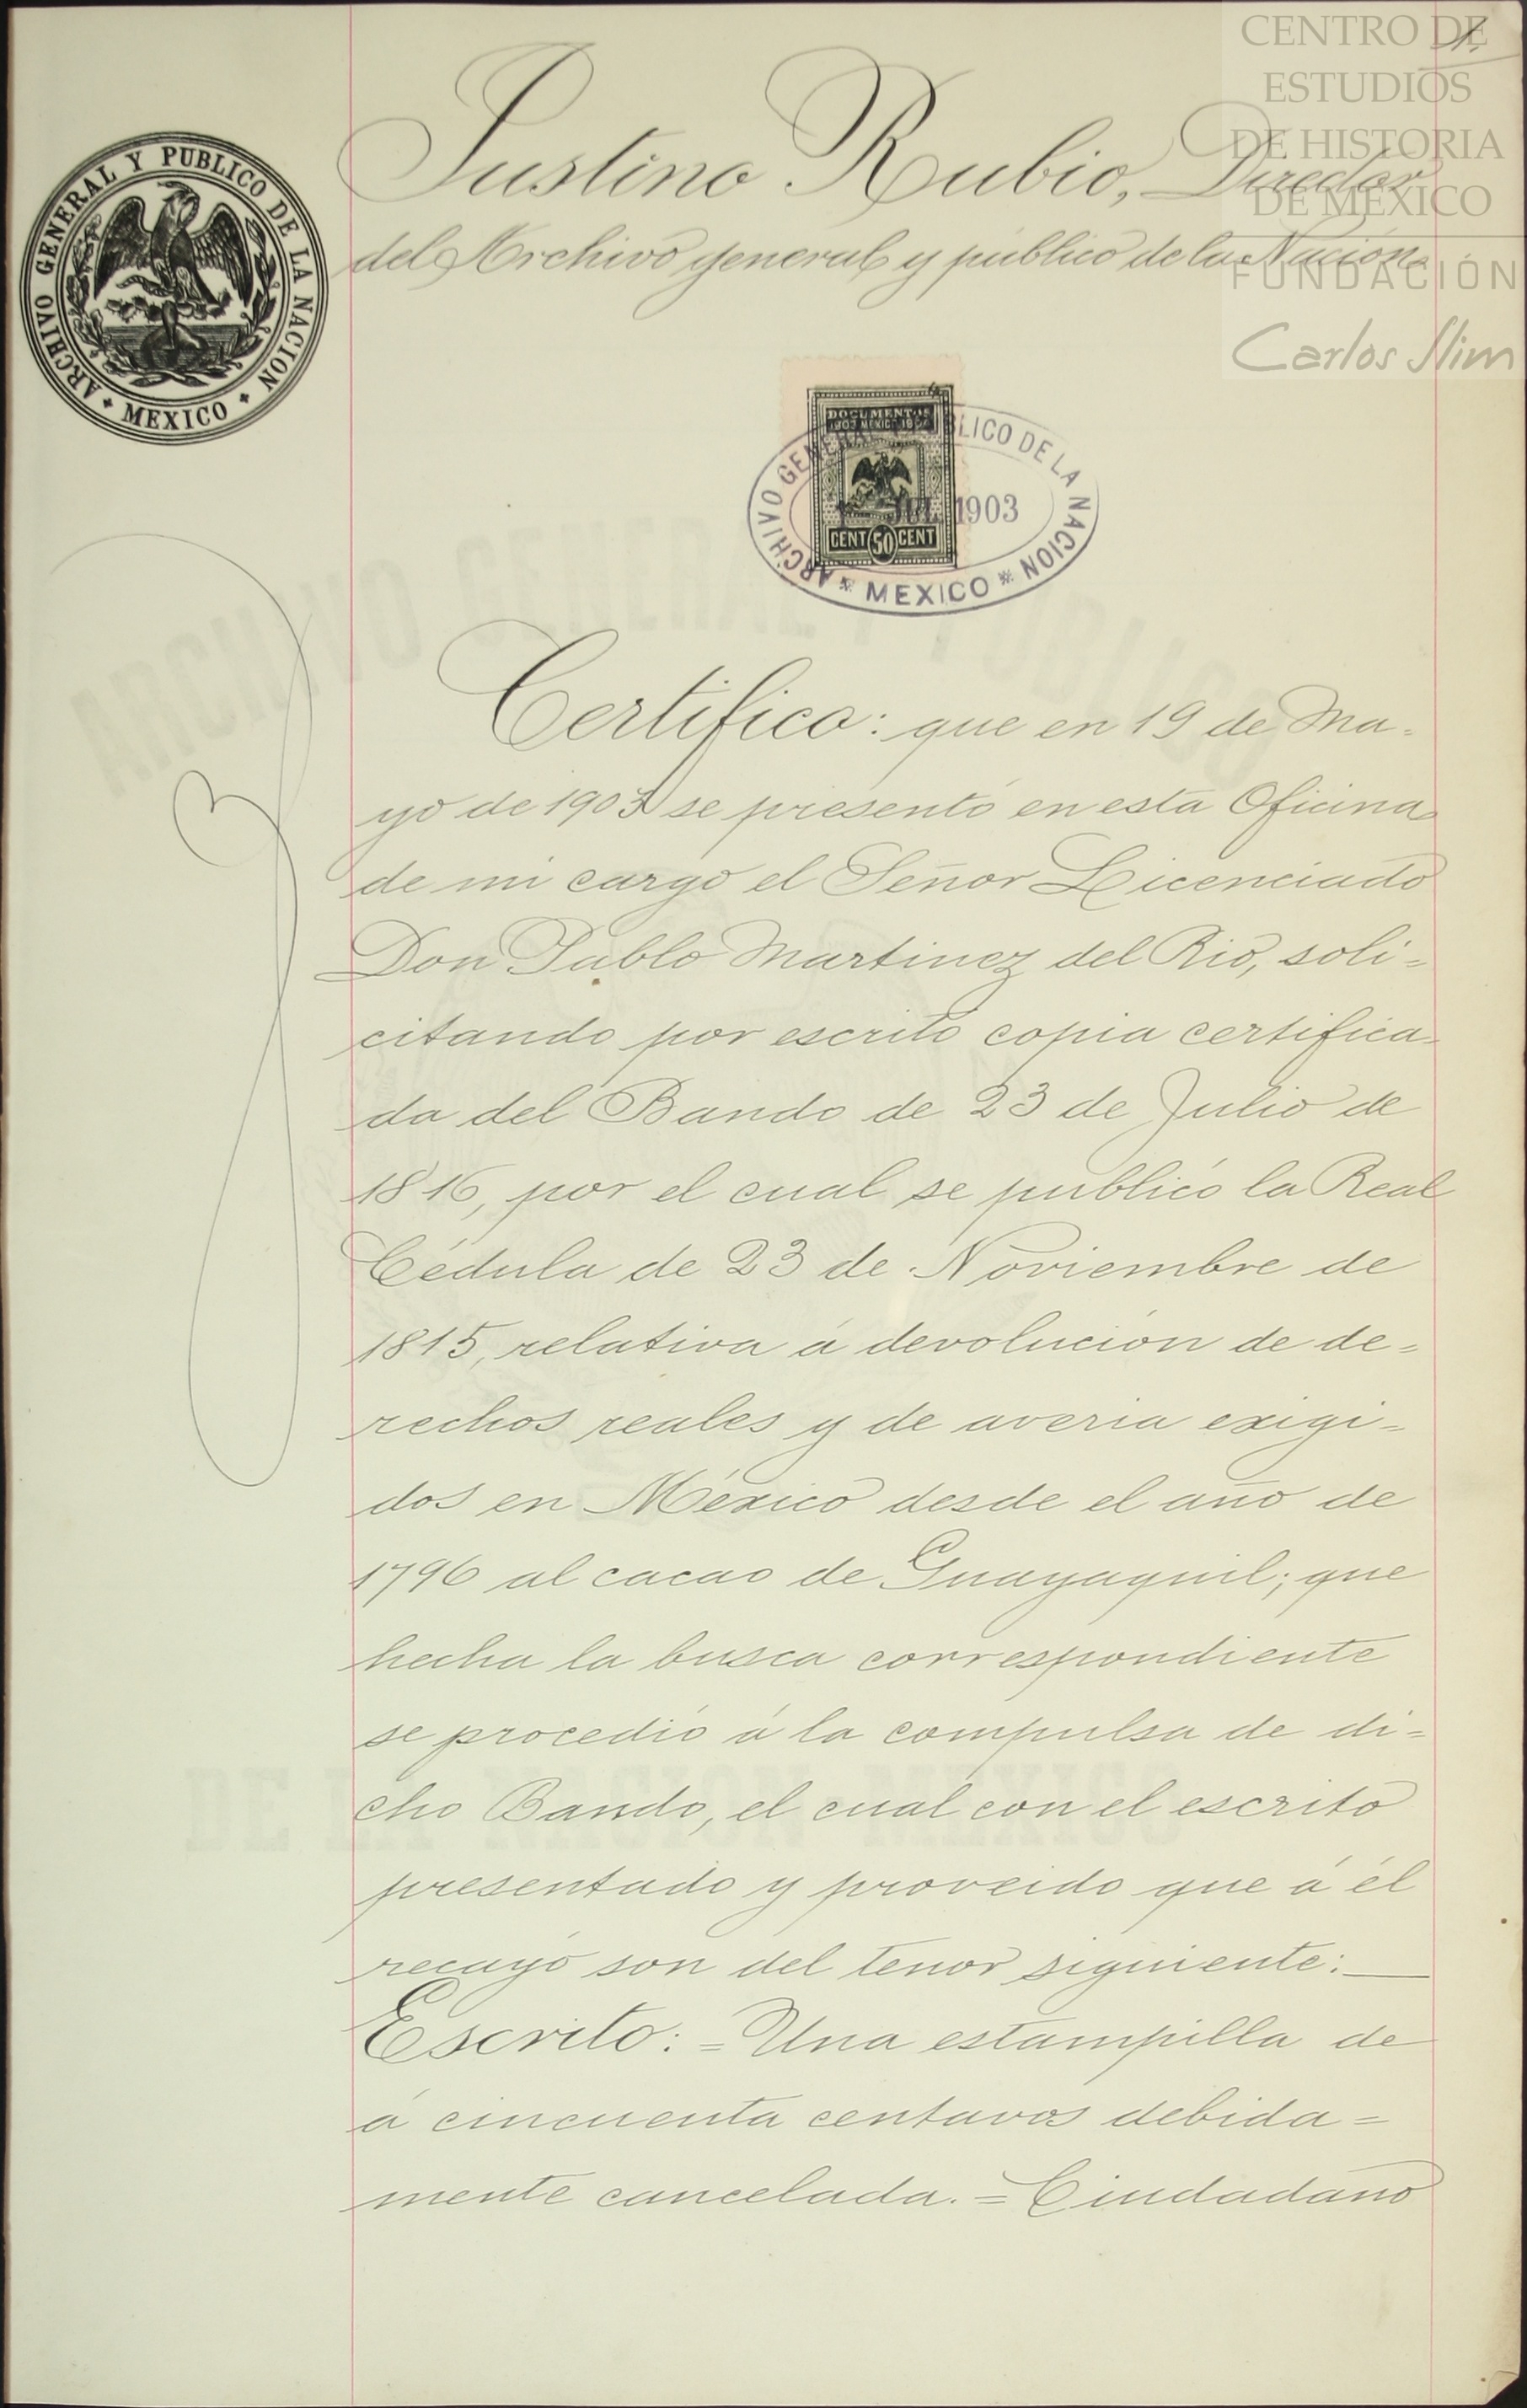 1.
CENTRO DE
ESTUDIOS
DE HISTORIA
DE MEXICO
FUNDACIÓN
Carlos Slim
ARCHIVO GENERAL Y PUBLICO DE LA NACION
MEXICO
Justino Rubio, Director
del Archivo general y público de la Nación
DOCUMENTOS
CENT 50 CENT
ARCHIVO GENERAL PUBLICO DE LA NACION
JUL 1903
MEXICO
Certifico: que en 19 de Ma-
yo de 1903 se presentó en esta Oficina
de mi cargo el Señor Licenciado
Don Pablo Martinez del Rio, soli=
citando por escrito copia certifica-
da del Bando de 23 de Julio de
1816, por el cual se publicó la Real
Cédula de 23 de Noviembre de
1815, relativa á devolución de de=
rechos reales y de avería exigi=
dos en México desde el año de
1796 al cacao de Guayaquil; que
hecha la busca correspondiente
se procedió á la compulsa de di=
cho Bando, el cual con el escrito
presentado y proveido que á él
recayó son del tenor siguiente:
Escrito: = Una estampilla de
á cincuenta centavos debida=
mente cancelada. = Ciudadano
ARCHIVO GENERAL Y PUBLICO
DE LA NACION MEXICO